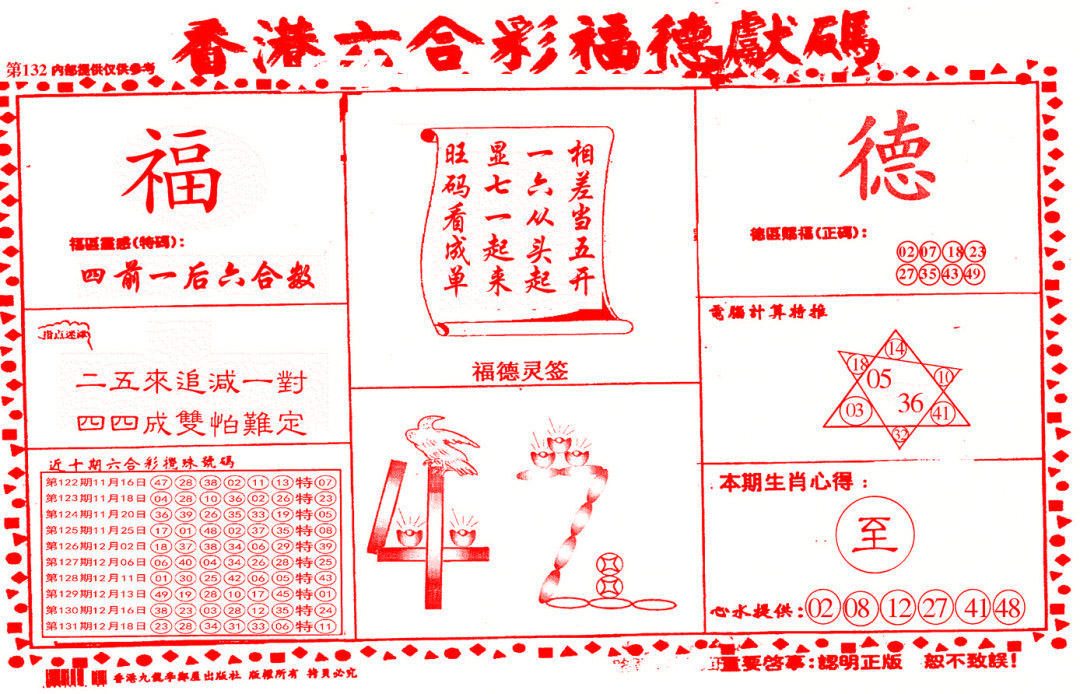 香港六合彩福德獻碼
第132 内部提供仅供参考
福
福區靈感(特碼):
四前一后六合数
指点迷津
二五來追減一對
四四成雙怕難定
近十期六合彩攪珠號碼
第122期11月16日 47 28 38 02 11 13 特 07
第123期11月18日 04 28 10 36 02 26 特 23
第124期11月20日 36 39 26 35 33 19 特 05
第125期11月25日 17 01 48 02 37 35 特 08
第126期12月02日 18 37 38 34 06 29 特 39
第127期12月06日 06 40 04 34 26 28 特 25
第128期12月11日 01 30 25 42 06 05 特 43
第129期12月13日 49 19 28 10 17 45 特 01
第130期12月16日 38 23 03 28 12 35 特 24
第131期12月18日 23 28 34 31 33 06 特 11
相差当五开
一六从头起
显七一起来
旺码看成单
福德灵签
德
德區賜福(正碼):
02 07 18 23
27 35 43 49
電腦計算特推
14
18
10
05
36
03
41
32
本期生肖心得:
至
心水提供: 02 08 12 27 41 48
香港九龍李鄭屋出版社 版權所有 拷貝必究
重要啓事:認明正版 恕不致誤!